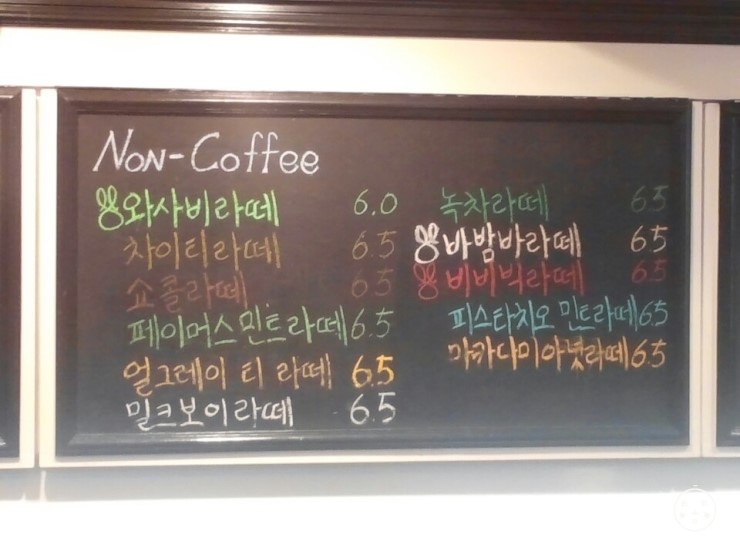 Non-Coffee
와사비라떼 6.0
차이티라떼 6.5
쇼콜라떼 6.5
페이머스민트라떼 6.5
얼그레이 티 라떼 6.5
밀크보이라떼 6.5
녹차라떼 6.5
바밤바라떼 6.5
비비빅라떼 6.5
피스타치오 민트라떼 6.5
마카다미아넛라떼 6.5